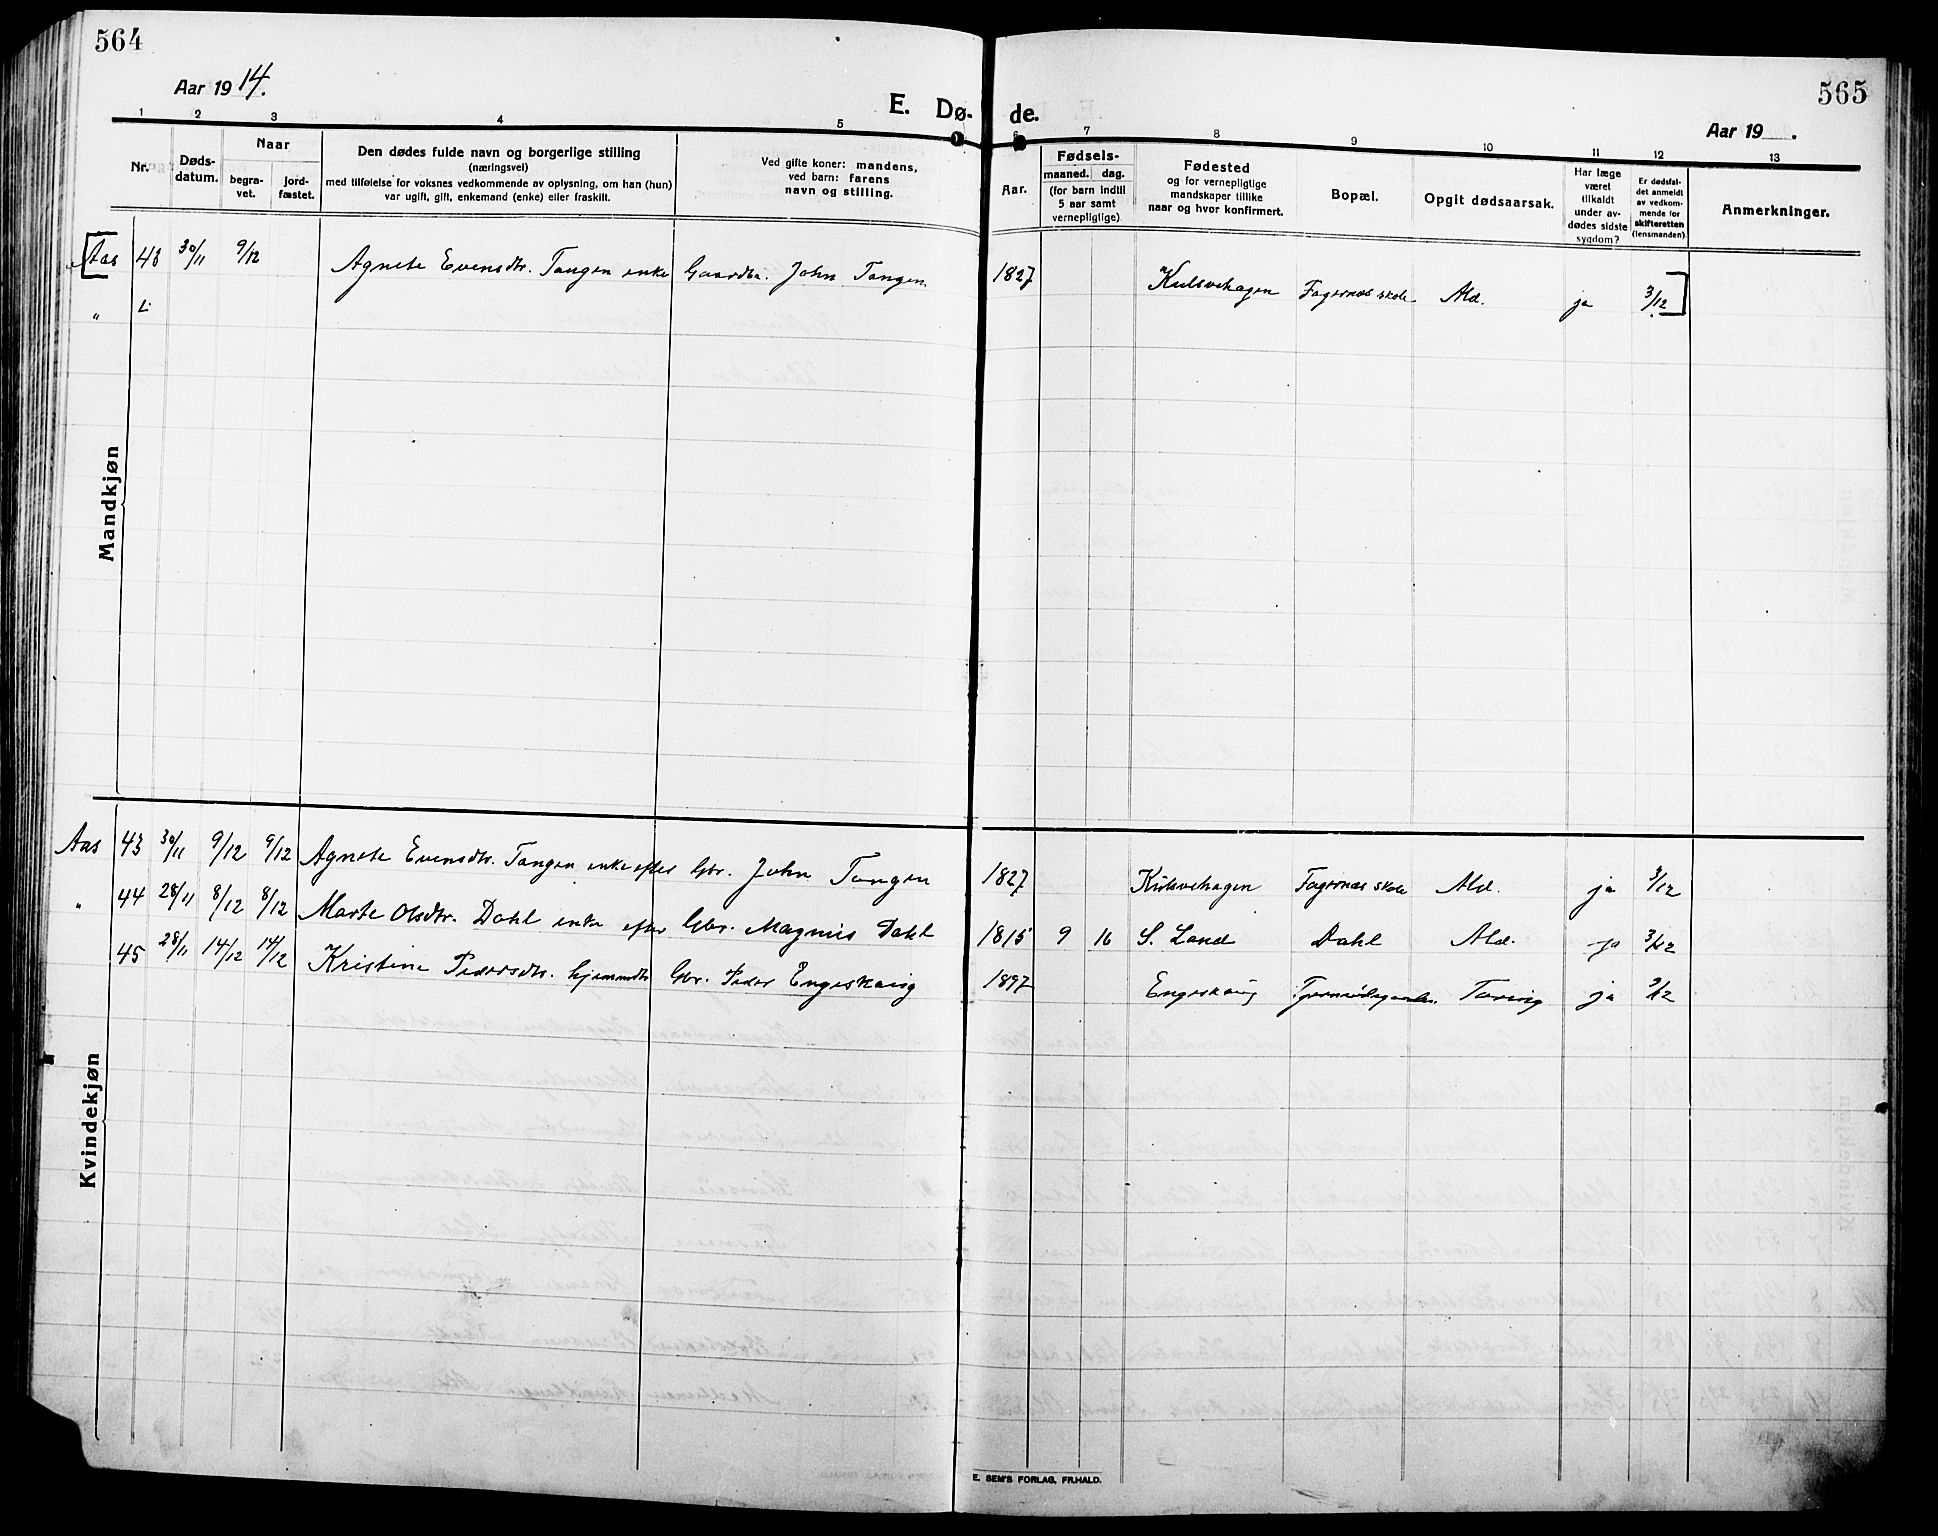 564
565
Aar 1914.
E. Dø- de.
Aar 19 .
1 2 3 4 5 6 7 8 9 10 11 12 13
Nr.
Døds-
datum.
Naar
begra-
vet.
jord-
fæstet.
Den dødes fulde navn og borgerlige stilling
(næringsvei)
med tilføielse for voksnes vedkommende av oplysning, om han (hun)
var ugift, gift, enkemand (enke) eller fraskilt.
Ved gifte koner: mandens,
ved barn: farens
navn og stilling.
Aar.
Fødsels-
maaned. dag.
(for barn indtil
5 aar samt
vernepligtige)
Fødested
og for vernepligtige
mandskaper tillike
naar og hvor konfirmert.
Bopæl.
Opgit dødsaarsak.
Har læge
været
tilkaldt
under av-
dødes sidste
sygdom?
Er dødsfal-
det anmeldt
av vedkom-
mende for
skifteretten
(lensmanden).
Anmerkninger.
Aas 43 30/11 9/12 Agnete Evensdtr. Tangen enke Gaardbr. John Tangen 1827 Kulsvehagen Fagernæs skole Ald. ja 3/12
"
Mandkjøn
Aas 43 30/11 9/12 9/12 Agnete Evensdtr. Tangen enke efter Gbr. John Tangen 1827 Kulsvehagen Fagernæs skole Ald. ja 3/12
" 44 28/11 8/12 8/12 Marte Olsdtr. Dahl enke efter Gbr. Magnus Dahl 1815 9 16 S. Land Dahl Ald. ja 3/12
45 28/11 14/12 14/12 Kristine Pedersdtr. hjemmdtr. Gbr. Peder Engeskaug 1897 Engeskaug Tæring ja 3/12
Kvindekjøn
E. SEM'S FORLAG, FR.HALD.